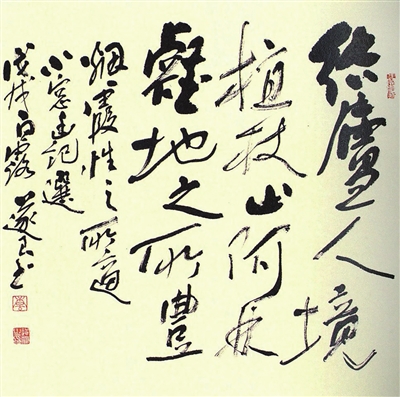 結廬人境
植杖山阿林
壑地之所豐
烟霞性之所適
小窗幽記選
戊戌白露